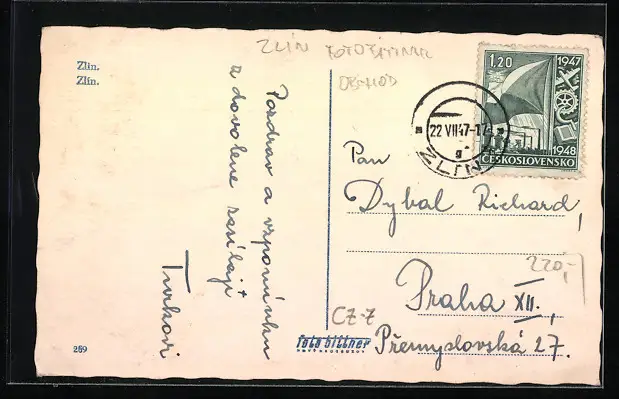 Zlin.
Zlín.
ZLÍN
OBCHOD
Pozdrav a vzpomínku
z dovolené zasílají
Turkovi
259
foto bittner
CZ-Z
1,20
1947
1948
ČESKOSLOVENSKO
22 VII 47-17
g
ZLÍN
Pan
Dybal Richard,
220,-
Praha XII.,
Přemyslovská 27.